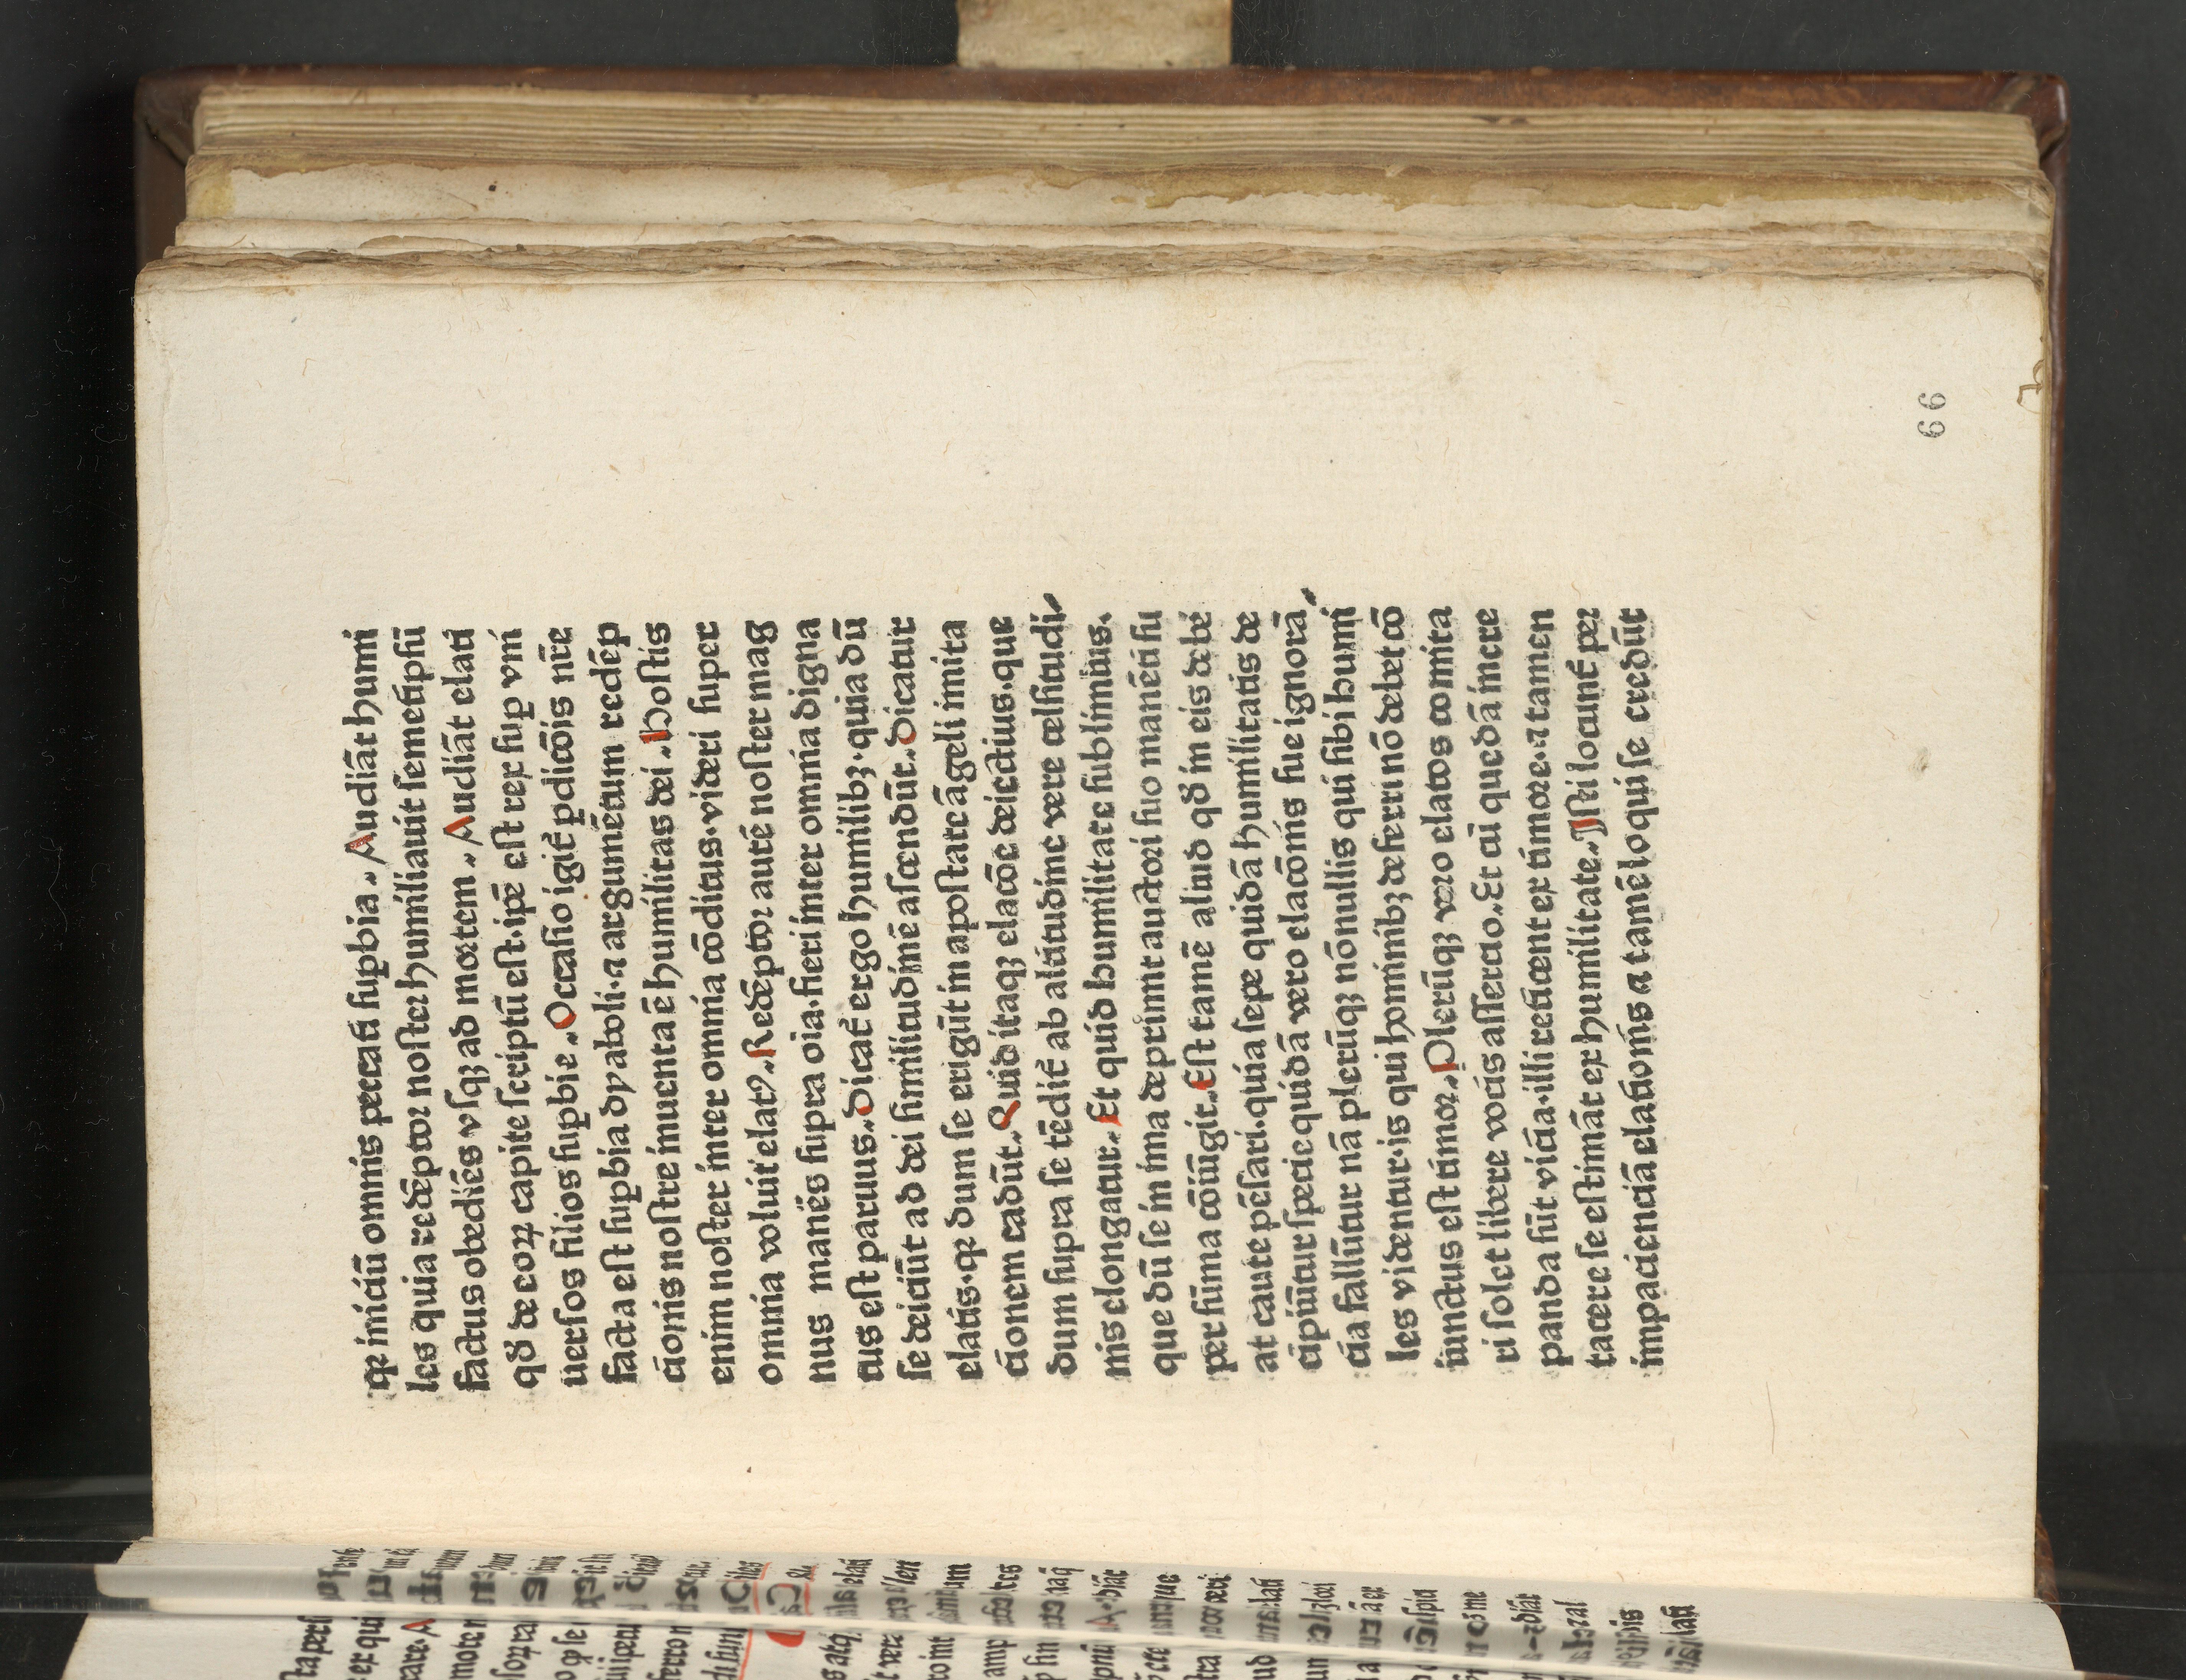 qꝛ iniciū omnis peccati supbia. Audiāt humi
les quia redēptoꝛ noster humiliauit semetipsū
factus obediēs vsqꝫ ad moꝛtem. Audiāt elati
qđ de coꝝ capite scriptū est. ipē est rex sup vni
uersos filios supbie. Occasio igiť pdicōis nr̄e
facta est supbia dyaboli. ⁊ argumētum redēp
cionis nostre inuenta ē humilitas dei. Hostis
enim noster inter omnia cōditus. videri super
omnia voluit elatꝰ. Redēptoꝛ autē noster mag
nus manēs supra oīa. fieri inter omnia digna
tus est paruus. Dicať ergo humilibꝫ. quia dū
se deiciūt ad dei similitudinē ascendūt. Dicatur
elatis. qꝛ dum se erigūt in apostate āgeli imita
cionem cadūt. Quid itaqꝫ elacōe deiectius. que
dum supra se tēdiť ab altitudine vere celsitudi
nis elongatur. Et quid humilitate sublimius.
que dū se in ima deprimit auctoꝛi suo manēti su
per sūma cōiūgit. Est tamē aliud qđ in eis debē
at caute pēsari. quia sepe quidā humilitatis de
cipiūtur specie quidā vero elacōnis sue ignorā
cia fallūtur nā plerūqꝫ nōnullis qui sibi humi
les videntur. is qui hominibꝫ deferri nō debet cō
iunctus est timoꝛ. Plerūqꝫ vero elatos comita
ri solet libere vocis assercio. Et cū quedā incre
panda sūt vicia. illi reticent ex timoꝛe. ⁊ tamen
tacere se estimāt ex humilitate. Isti locunť per
impacienciā elationis ⁊ tamē loqui se credūt
66